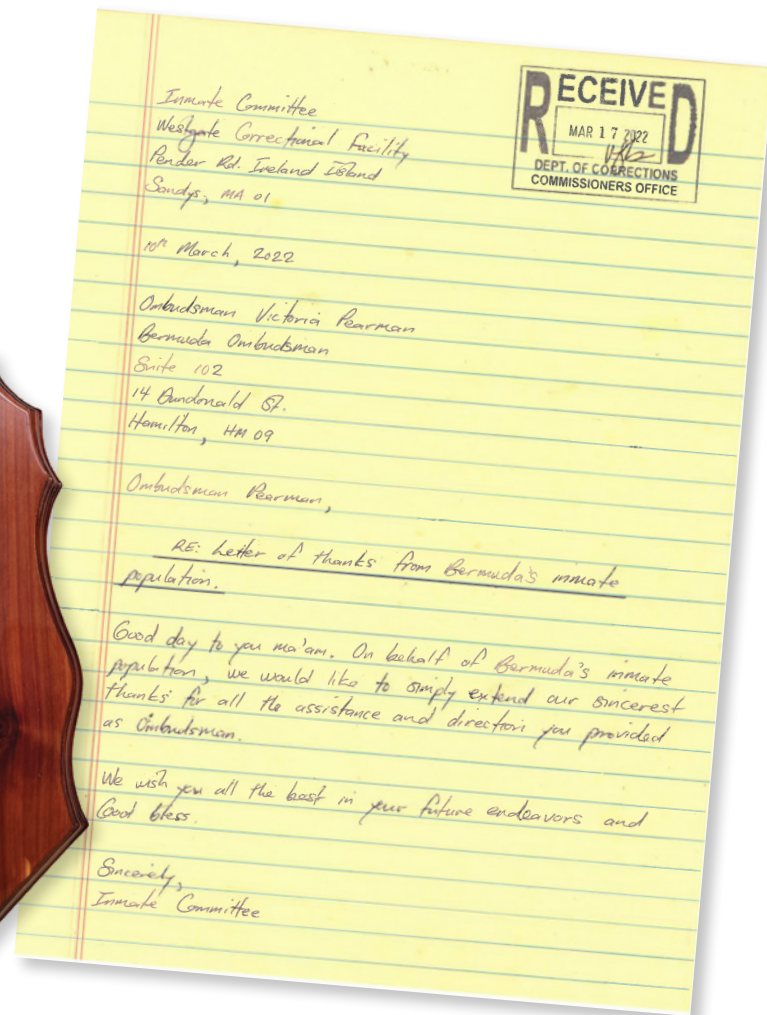 RECEIVED
MAR 17 2022
DEPT. OF CORRECTIONS
COMMISSIONERS OFFICE
Inmate Committee
Westgate Correctional Facility
Pender Rd. Ireland Island
Sandys, MA 01
10th March, 2022
Ombudsman Victoria Pearman
Bermuda Ombudsman
Suite 102
14 Dundonald St.
Hamilton, HM 09
Ombudsman Pearman,
RE: Letter of thanks from Bermuda's inmate
population.
Good day to you ma'am. On behalf of Bermuda's inmate
population, we would like to simply extend our sincerest
thanks for all the assistance and direction you provided
as Ombudsman.
We wish you all the best in your future endeavors and
God bless.
Sincerely,
Inmate Committee